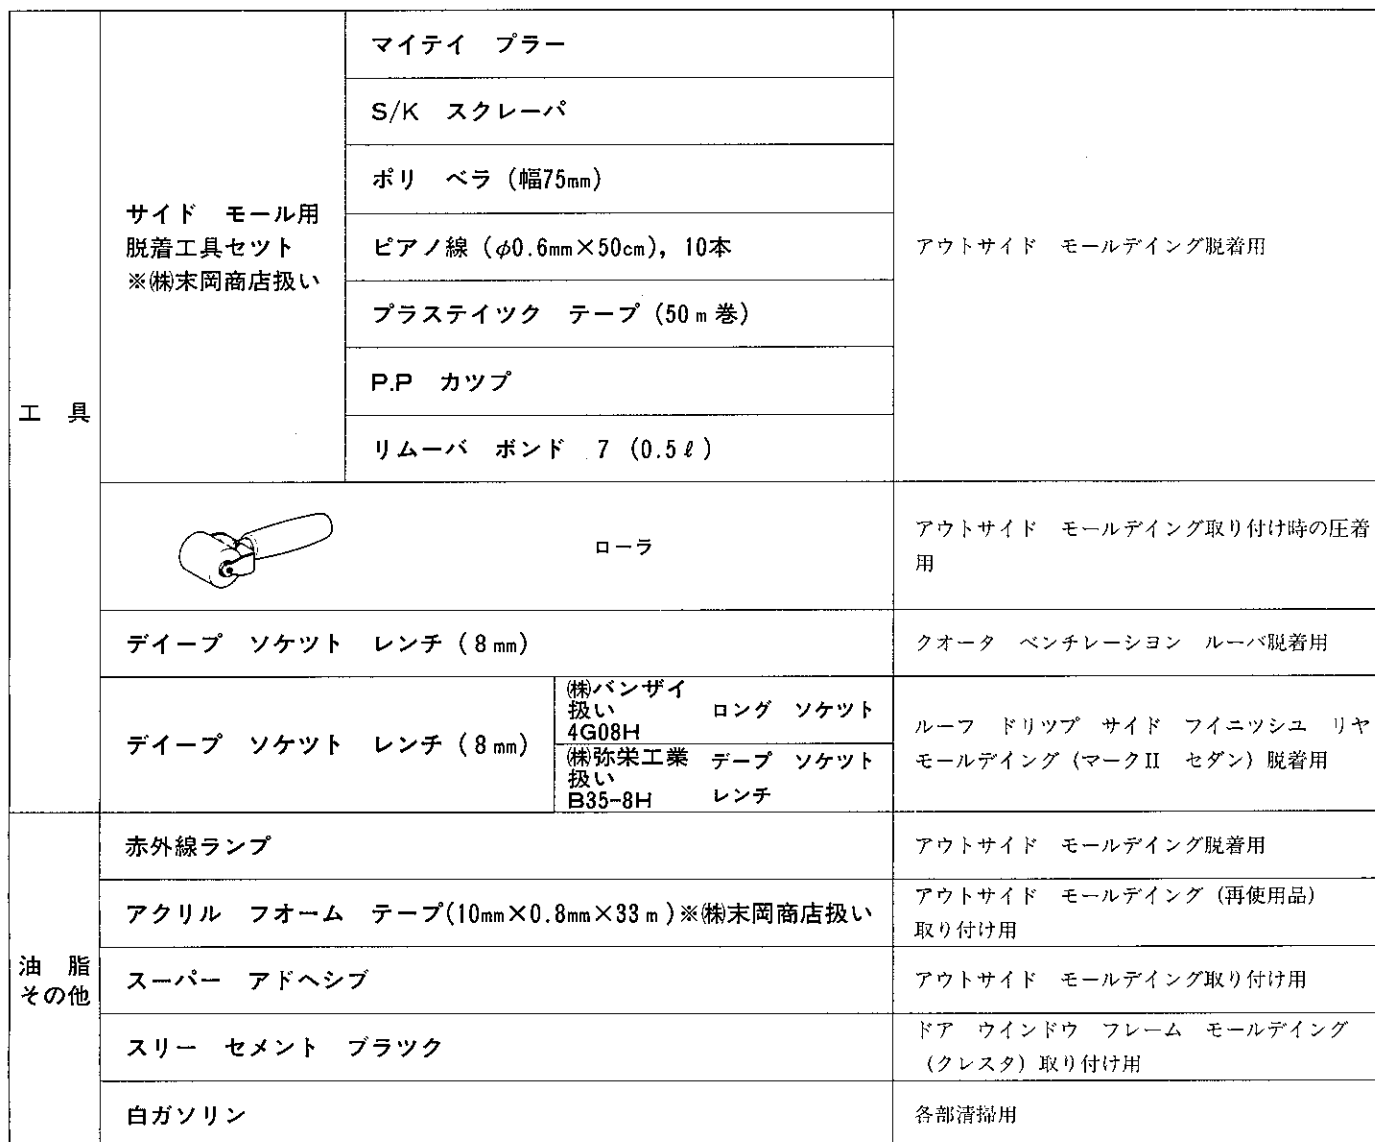 工　具
サイド　モール用
脱着工具セツト
※㈱末岡商店扱い
マイテイ　プラー
S/K　スクレーパ
ポリ　ベラ（幅75㎜）
ピアノ線（φ0.6㎜×50㎝），10本
プラステイツク　テープ（50ｍ巻）
P.P　カツプ
リムーバ　ボンド　7（0.5ℓ）
アウトサイド　モールデイング脱着用
ローラ
アウトサイド　モールデイング取り付け時の圧着
用
デイープ　ソケツト　レンチ（8㎜）
クオータ　ベンチレーシヨン　ルーバ脱着用
デイープ　ソケツト　レンチ（8㎜）
㈱バンザイ
扱い
4G08H
ロング　ソケツト
㈱弥栄工業
扱い
B35-8H
デープ　ソケツト
レンチ
ルーフ　ドリツプ　サイド　フイニツシユ　リヤ
モールデイング（マークⅡ　セダン）脱着用
油　脂
その他
赤外線ランプ
アウトサイド　モールデイング脱着用
アクリル　フオーム　テープ(10㎜×0.8㎜×33ｍ)※㈱末岡商店扱い
アウトサイド　モールデイング（再使用品）
取り付け用
スーパー　アドヘシブ
アウトサイド　モールデイング取り付け用
スリー　セメント　ブラツク
ドア　ウインドウ　フレーム　モールデイング
（クレスタ）取り付け用
白ガソリン
各部清掃用